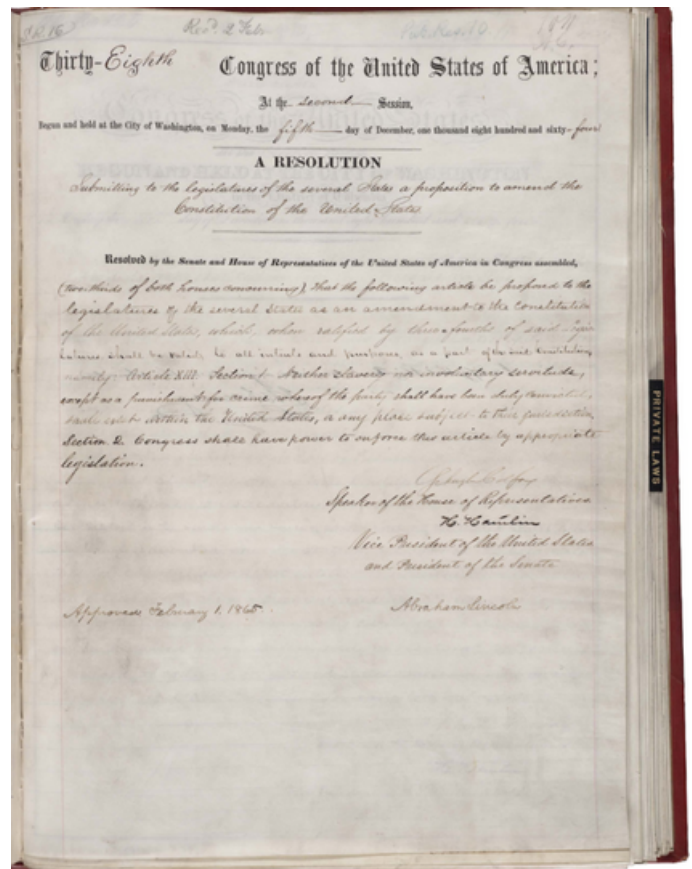 S.R. 16
Recd. 2 Feby
Pub. Res. 10
Thirty-Eighth Congress of the United States of America;
At the second Session,
Begun and held at the City of Washington, on Monday, the fifth day of December, one thousand eight hundred and sixty-four
A RESOLUTION
Submitting to the legislatures of the several States a proposition to amend the
Constitution of the United States
Resolved by the Senate and House of Representatives of the United States of America in Congress assembled,
(two thirds of both houses concurring), that the following article be proposed to the
legislatures of the several States as an amendment to the Constitution
of the United States, which, when ratified by three-fourths of said legis-
latures shall be valid, to all intents and purposes, as a part of the said Constitution,
namely: Article XIII. Section 1. Neither slavery nor involuntary servitude,
except as a punishment for crime, whereof the party shall have been duly convicted,
shall exist within the United States, or any place subject to their jurisdiction,
Section 2. Congress shall have power to enforce this article by appropriate
legislation.
Schuyler Colfax
Speaker of the House of Representatives
H. Hamlin
Vice President of the United States
and President of the Senate
Approved February 1. 1865. Abraham Lincoln
PRIVATE LAWS